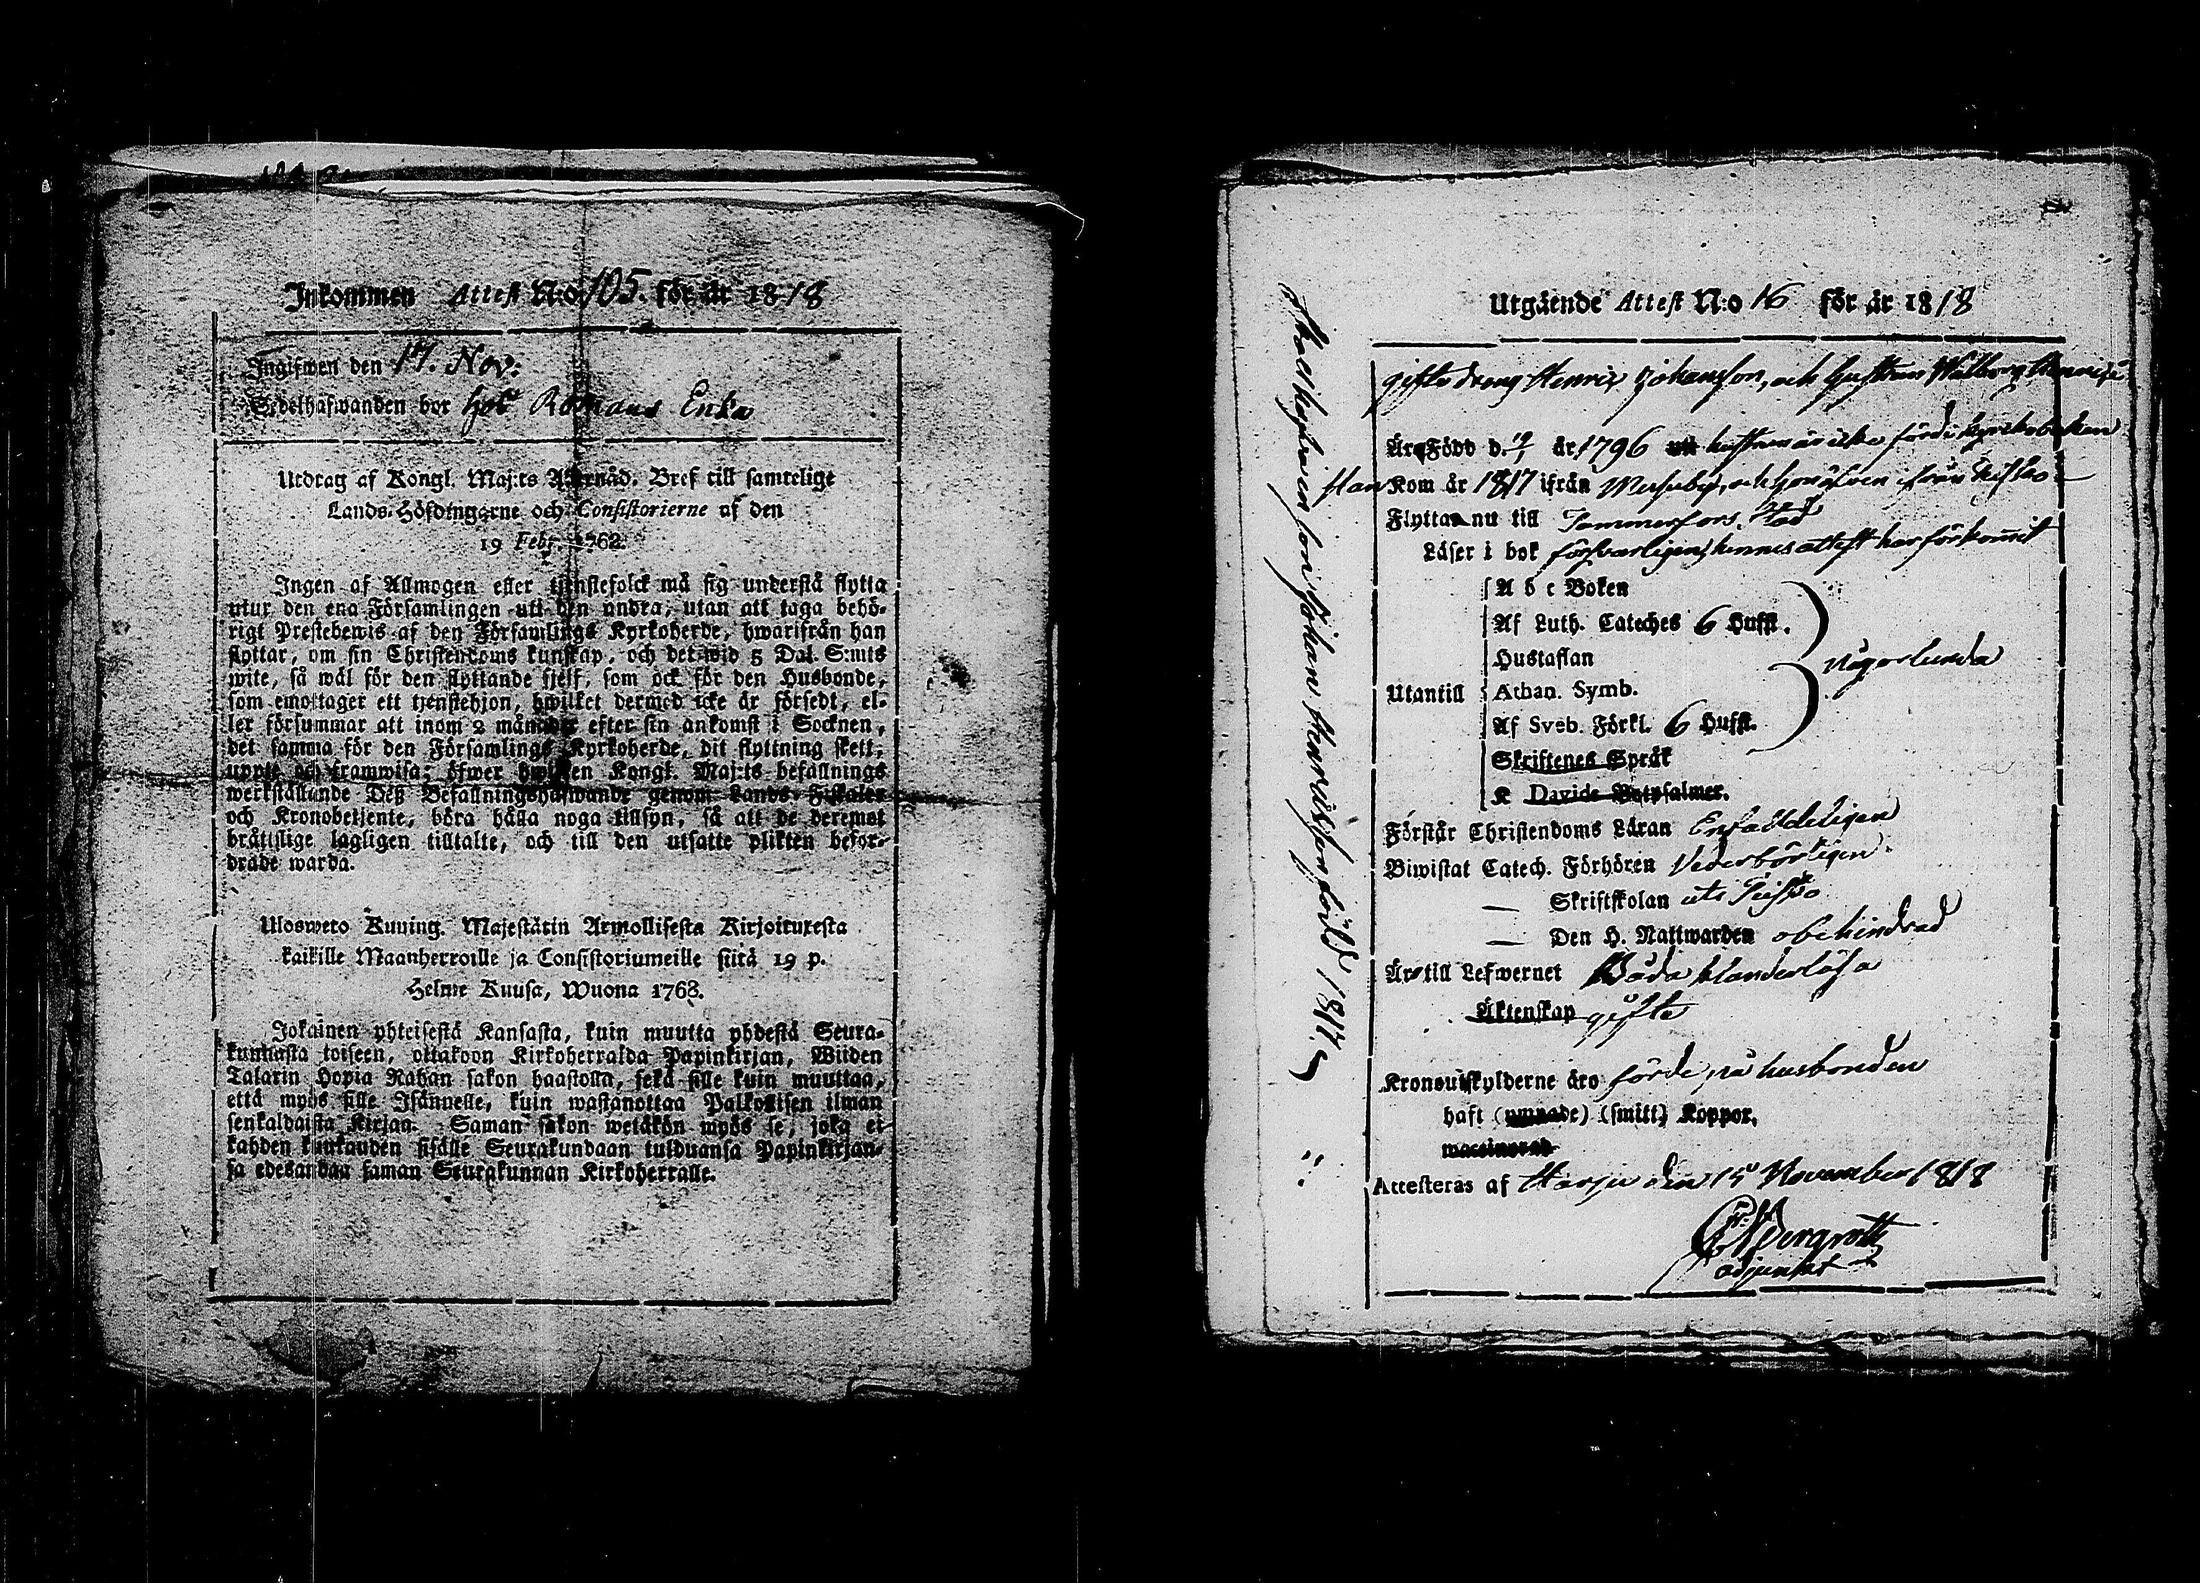 Inkommen Attest N:o 105. för år 1818
Ingifwen den 17. Nov:
Sedelhafwanden bor hos Romans Enka
Utdrag af Kongl. Maj:ts Allernåd. Bref till samtelige
Lands-Höfdingarne och Consistorierne af den
19 Febr. 1762.
Ingen af Allmogen eller tjenstefolck må sig understå flytta
utur den ena Församlingen uti den andra, utan att taga behö-
rigt Prestebewis af den Församlings Kyrkoherde, hwarifrån han
flyttar, om sin Christendoms kunskap, och det wid 5 Dal. S:mts
wite, så wäl för den flyttande sjelf, som ock för den Husbonde,
som emottager ett tjenstehjon, hwilket dermed icke är försedt, el-
ler försummar att inom 2 månader efter sin ankomst i Socknen,
det samma för den Församlings Kyrkoherde, dit flyttning skett,
uppte och framwisa; öfwer hwilken Kongl. Maj:ts befallnings
werkställande Deß Befallningshafwande genom Lands-Fiskaler
och Kronobetjente, böra hålla noga tillsyn, så att de deremot
brättslige lagligen tilltalte, och till den utsatte plikten befor-
drade warda.
Uloswето Kuning. Majestätin Armollisesta Kirjoituxesta
kaikille Maanherroille ja Consistoriumeille siitä 19 p.
Helme Kuusa, Wuona 1762.
Jokainen yhteisestä Kansasta, kuin muutta yhdestä Seura-
kunnasta toiseen, ottakoon Kirkoherralda Papinkirjan, Wiiden
Talarin Hopia Rahan sakon haastolla, sekä sille kuin muuttaa,
että myös sille Isännelle, kuin wastanottaa Palkollisen ilman
senkaldaista Kirjan. Saman sakon wetäkön myös se, joka ei
kahden kuukauden sisälle Seurakundaan tulduansa Papinkirjan-
sa edesandaa saman Seurakunnan Kirkoherralle.
Utgående Attest N:o 16 för år 1818
gifte dräng Henric Johansson, och hustrun Walborg Henrics
Äro Född d. 19/1 år 1796 hustrun är icke förd i kyrkoboken
Han Kom år 1817 ifrån
Flytta nu till Tammerfors Stad
Läser i bok försvarligen, hennes attest har förkommit
A b c Boken
Af Luth. Cateches 6 Hufst.
Hustaflan
Utantill Athan. Symb.
någorlunda
Af Sveb. Förkl. 6 Hufst.
Skriftenes Språk
K Davids Botpsalmer.
Förstår Christendoms Läran Enfaldeligen
Biwistat Catech. Förhören Vederbörligen
— Skriftskolan
— Den H. Nattwarden obehindrad
Äro till Lefwernet Båda klanderlösa
Äktenskap gifte
Kronoutskylderne äro förde på husbonden
haft (ympade) (smitt) Koppor.
vaccinerad
Attesteras af Harju den 15 November 1818
Bergroth
adjunkt
son Johan Henricsson född 1817